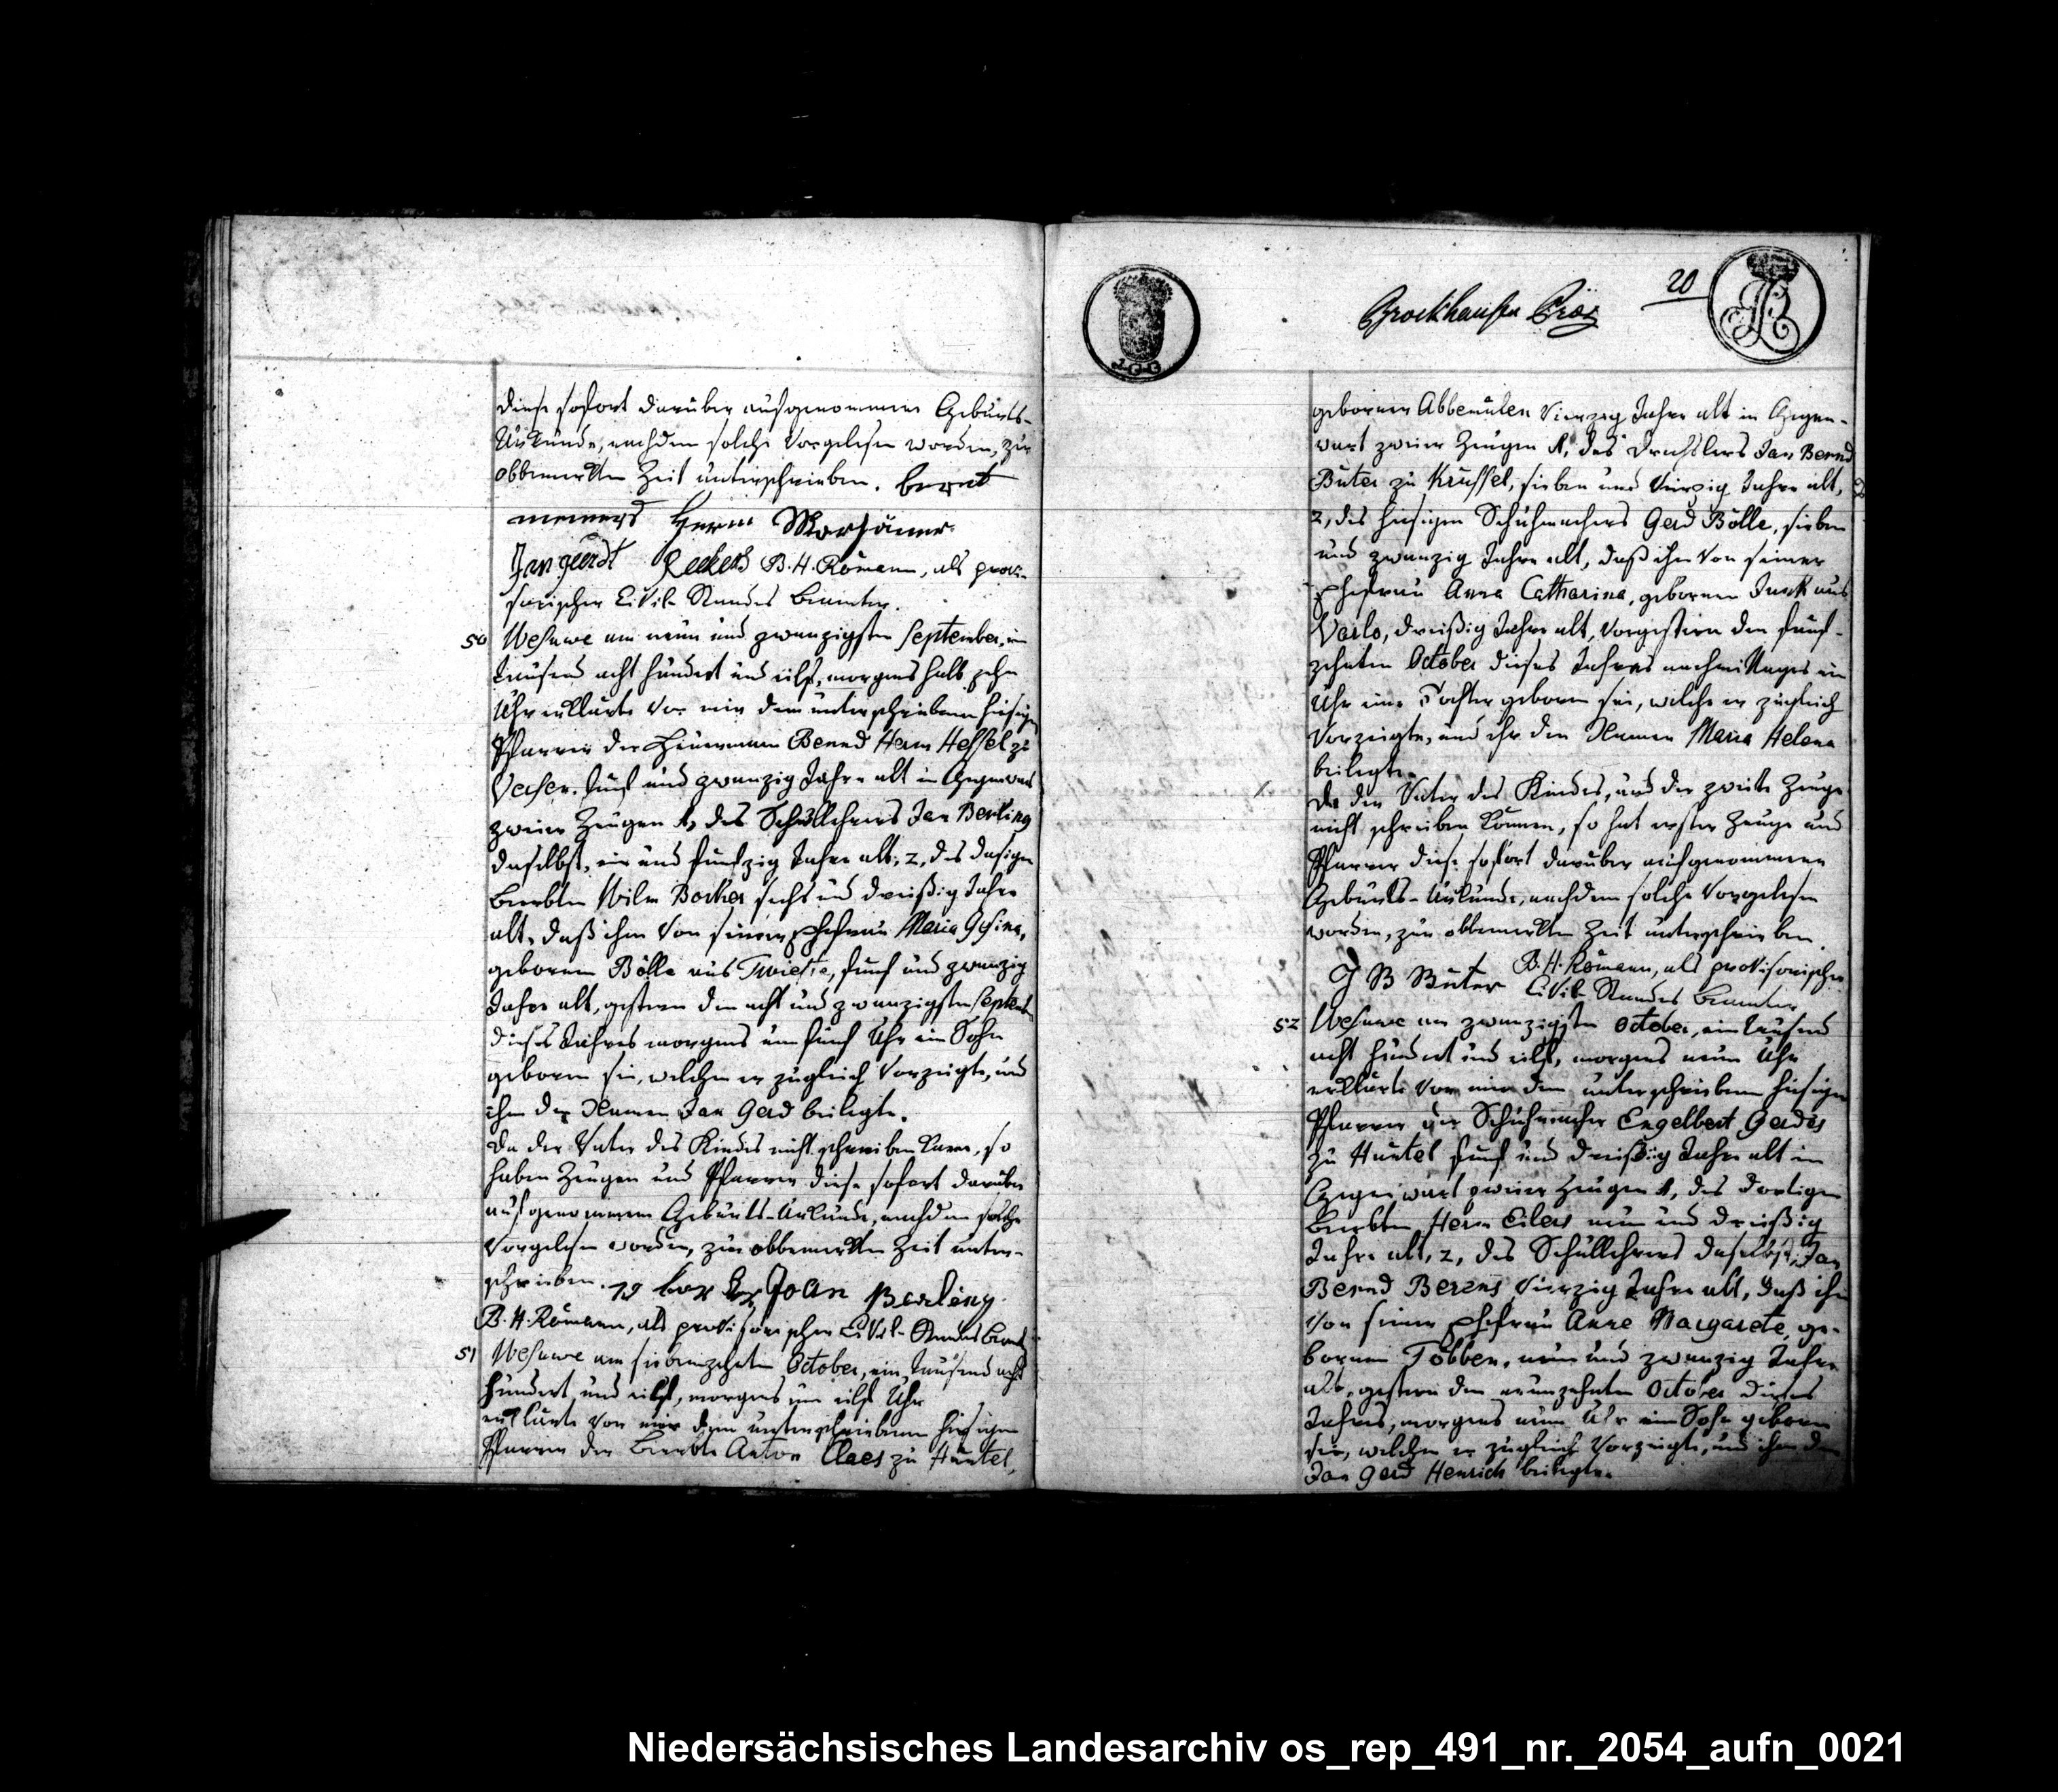 diese sofort darüber aufgenommene Geburts-
Urkunde, nachdem solche vorgelesen worden, zur
obbemerkten Zeit unterschrieben. bernt
meiners Herm
Jan geerdt B. H. Römann, als provi-
sorischer Civil-Standes Beamter.
50 Wesuwe am neun und zwanzigsten September, ein
tausend acht hundert und eilf, morgens halb zehn
Uhr erklärte vor mir dem unterschriebenen hiesigen
Pfarrer der Heuermann Bernd Herm Hessel zu
Versen, fünf und zwanzig Jahre alt in Gegenwart
zweier Zeugen 1, des Schullehrers Jan Berling
daselbst, ein und fünfzig Jahre alt; 2, des dasigen
Beerbten Wilm Borker sechs und dreißig Jahre
alt, daß ihm von seiner Ehefrau Maria Gesina,
geboren Bölle aus Twist, fünf und zwanzig
Jahre alt, gestern den acht und zwanzigsten September
dieses Jahres morgens um fünf Uhr ein Sohn
geboren sei, welchen er zugleich vorzeigte, und
ihm den Namen Jan Gerd beilegte.
Da der Vater des Kindes nicht schreiben kann, so
haben Zeugen und Pfarrer diese sofort darüber
aufgenommene Geburts-Urkunde, nachdem solche
vorgelesen worden, zur obbemerkten Zeit unter-
schrieben. Joan Berling
B. H. Römann, als provisorischer Civil-Standes Beamte
51 Wesuwe am siebenzehnten October, ein tausend acht
hundert und eilf, morgens um eilf Uhr
erklärte vor mir dem unterschriebenen hiesigen
Pfarrer der Beerbte Anton Claes zu Huntel,
20
100
geboren Abbemülen vierzig Jahre alt in Gegen-
wart zweier Zeugen 1, des Drechslers Jan Bernd
Büter zu Krüssel, sieben und vierzig Jahre alt,
2, des hiesigen Schuhmachers Gerd Bölle, sieben
und zwanzig Jahre alt, daß ihm von seiner
Ehefrau Anna Catharina, geboren aus
Varlo, dreißig Jahre alt, vorgestern den fünf-
zehnten October dieses Jahres nachmittages ein
Uhr eine Tochter geboren sei, welche er zugleich
vorzeigte, und ihr den Namen Maria Helena
beilegte.
Da der Vater des Kindes, und der zweite Zeuge
nicht schreiben können, so hat erster Zeuge und
Pfarrer diese sofort darüber aufgenommene
Geburts-Urkunde, nachdem solche vorgelesen
worden, zur obbemerkten Zeit unterschrieben.
J B Buter B. H. Römann, als provisorischer
Civil-Standes Beamter
52 Wesuwe am zwanzigsten October, ein tausend
acht hundert und eilf, morgens neun Uhr
erklärte vor mir dem unterschriebenen hiesigen
Pfarrer der Schuhmacher Engelbert Gerdes
zu Huntel fünf und dreißig Jahre alt in
Gegenwart zweier Zeugen 1, des dortigen
Beerbten Herm Eilers neun und dreißig
Jahre alt, 2, des Schullehrers daselbst, Jan
Bernd Berens vierzig Jahre alt, daß ihm
von seiner Ehefrau Anne Margarete, ge-
boren Tobben, neun und zwanzig Jahre
alt, gestern den neunzehnten October dieses
Jahres, morgens neun Uhr ein Sohn geboren
sei, welchen er zugleich vorzeigte, und ihm den
Jan Gerd Henrich beilegte.
Niedersächsisches Landesarchiv os_rep_491_nr._2054_aufn_0021